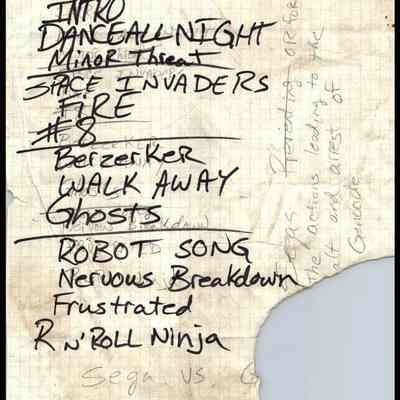 INTRO
DANCEALLNIGHT
Minor Threat
SPACE INVADERS
FIRE
#8
BerzerKeR
WALK AWAY
Ghosts
ROBOT SONG
Nervous Breakdown
Frustrated
R N' ROLL Ninja
Sega vs. G
the actions leading to the
and arrest of